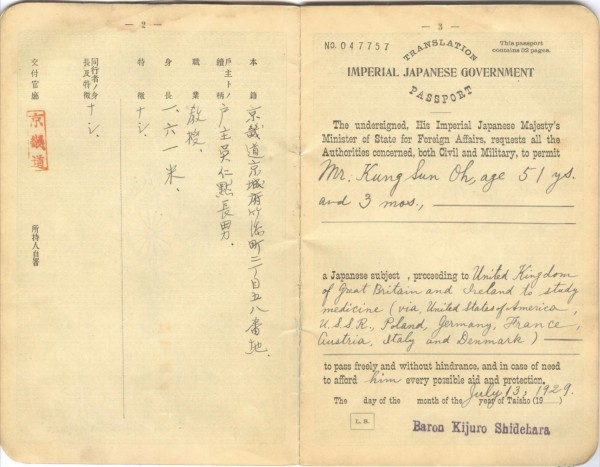 — 2 —
本籍 京畿道京城府竹添町二丁目五八番地.
戸主トノ續柄 戸主吳仁黙長男.
職業 敎授.
身長 一.六一米.
特徵 ナシ.
同行者ノ身長及特徵 ナシ.
交付官廳 京畿道
所持人自署
— 3 —
NO. 047757
This passport contains 32 pages.
TRANSLATION
IMPERIAL JAPANESE GOVERNMENT
PASSPORT
The undersigned, His Imperial Japanese Majesty's
Minister of State for Foreign Affairs, requests all the
Authorities concerned, both Civil and Military, to permit
Mr. Kung Sun Oh, age 51 ys.
and 3 mos.,
a Japanese subject , proceeding to United Kingdom
of Great Britain and Ireland to study
medicine (via United States of America,
U.S.S.R., Poland, Germany, France,
Austria, Italy and Denmark)
to pass freely and without hindrance, and in case of need
to afford him every possible aid and protection.
July 13, 1929.
The day of the month of the year of Taisho (19 )
L. S.
Baron Kijuro Shidehara